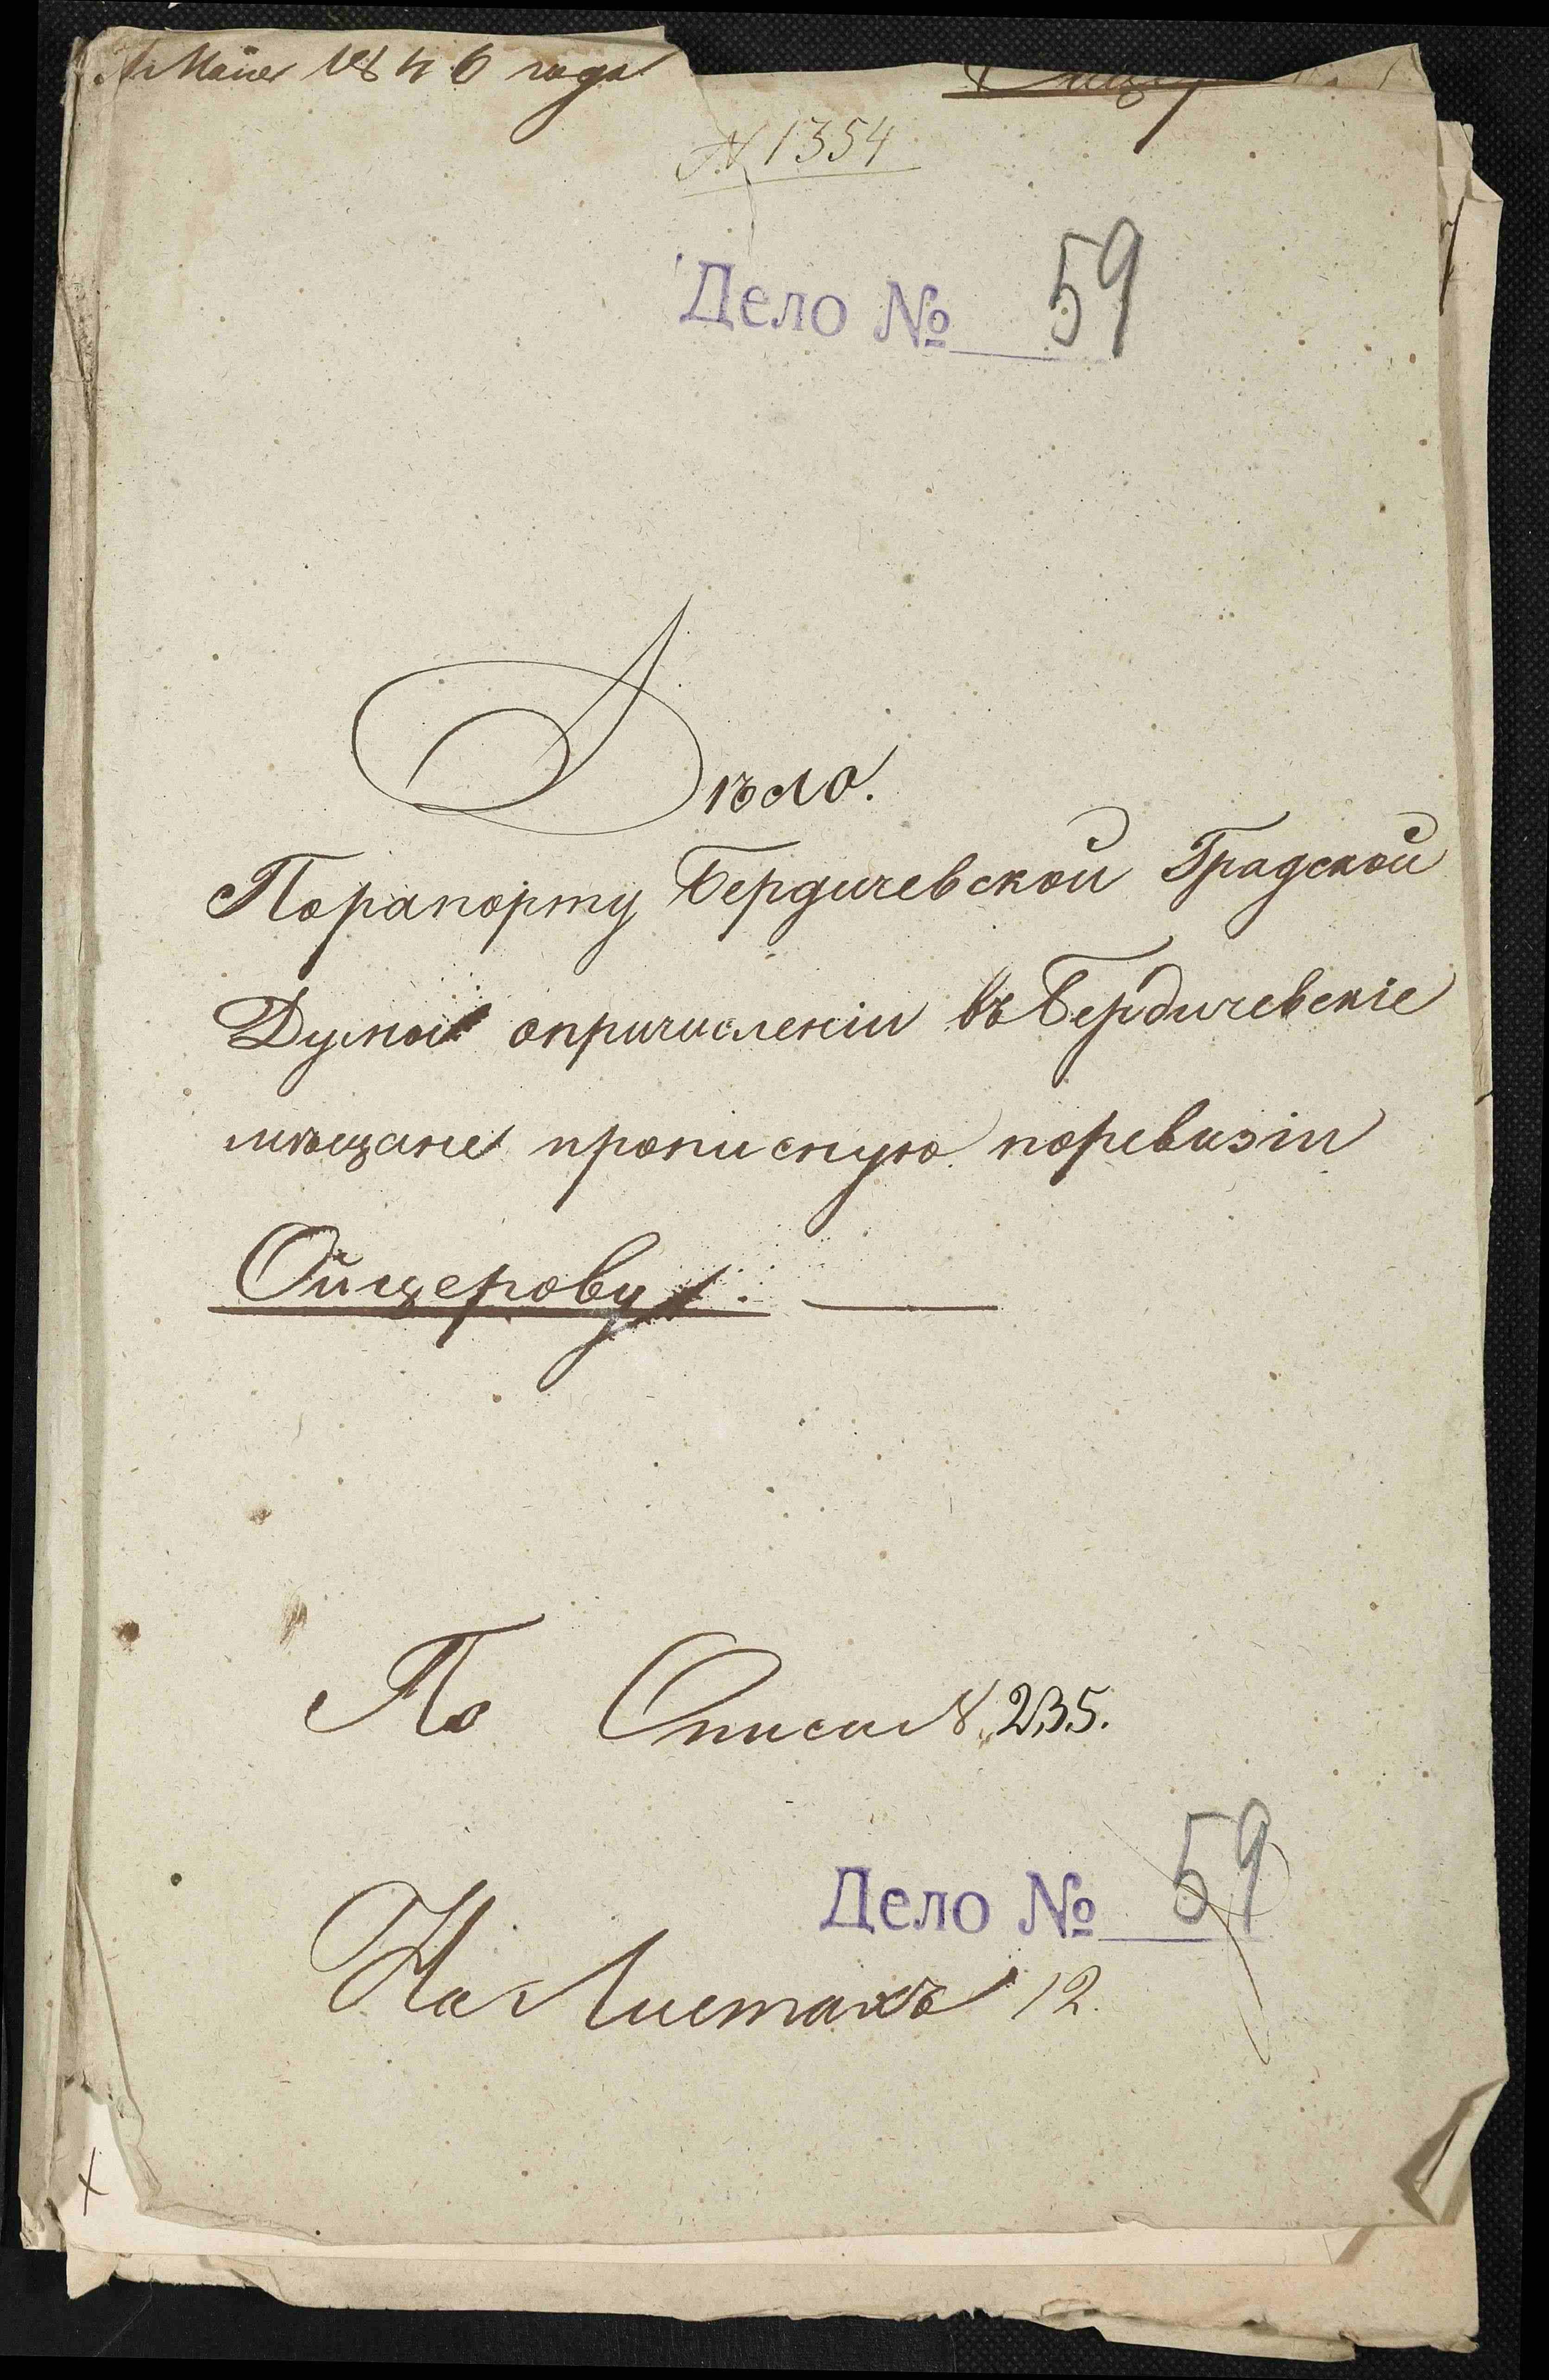 Мая 1846 года
№ 1354
Дело № 59
Дѣло.
Порапорту Бердичевской Градской
Думы опричисленіи въ Бердичевскіе
мѣщане прописную поревизіи
Ойцерову.
По Описи № 235.
Дело № 59
На Листахъ 12.